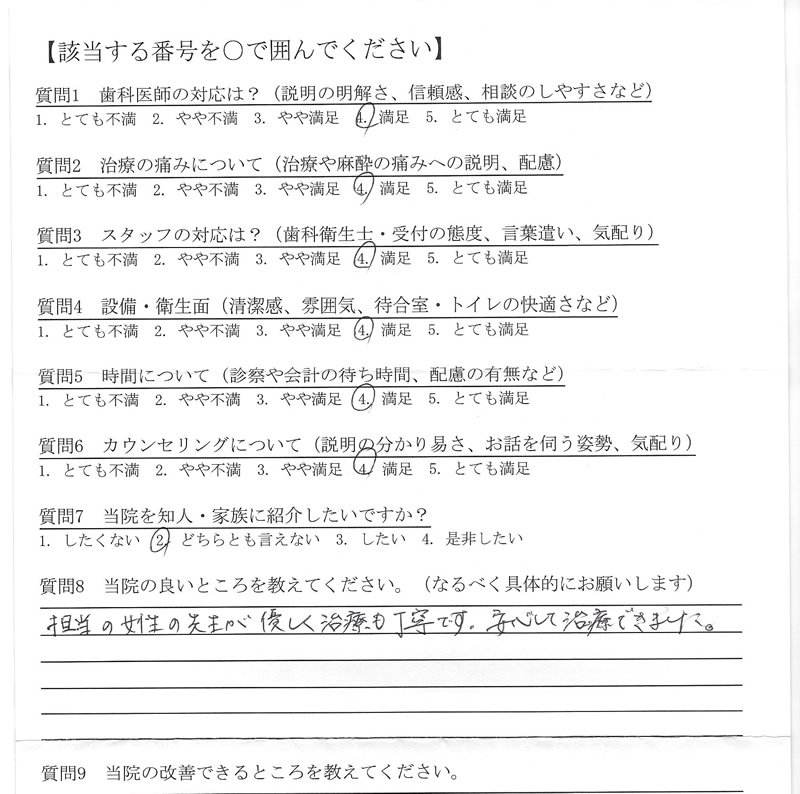 【該当する番号を〇で囲んでください】
質問1 歯科医師の対応は？（説明の明解さ、信頼感、相談のしやすさなど）
1. とても不満 2. やや不満 3. やや満足 4. 満足 5. とても満足
質問2 治療の痛みについて（治療や麻酔の痛みへの説明、配慮）
1. とても不満 2. やや不満 3. やや満足 4. 満足 5. とても満足
質問3 スタッフの対応は？（歯科衛生士・受付の態度、言葉遣い、気配り）
1. とても不満 2. やや不満 3. やや満足 4. 満足 5. とても満足
質問4 設備・衛生面（清潔感、雰囲気、待合室・トイレの快適さなど）
1. とても不満 2. やや不満 3. やや満足 4. 満足 5. とても満足
質問5 時間について（診察や会計の待ち時間、配慮の有無など）
1. とても不満 2. やや不満 3. やや満足 4. 満足 5. とても満足
質問6 カウンセリングについて（説明の分かり易さ、お話を伺う姿勢、気配り）
1. とても不満 2. やや不満 3. やや満足 4. 満足 5. とても満足
質問7 当院を知人・家族に紹介したいですか？
1. したくない 2. どちらとも言えない 3. したい 4. 是非したい
質問8 当院の良いところを教えてください。（なるべく具体的にお願いします）
担当の女性の先生が優しく治療も丁寧です。安心して治療できました。
質問9 当院の改善できるところを教えてください。